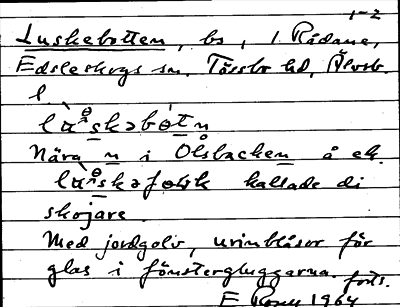 1-2
Luskebotten, bs, 1 Rådane,
Edsleskogs sn. Tössbo hd, Älvsb.
l.
Nära n i Olsbacken å ek.
kallade di
skojare.
Med jordgolv, urinblåsor för
glas i fönstergluggarna. forts.
E 1964